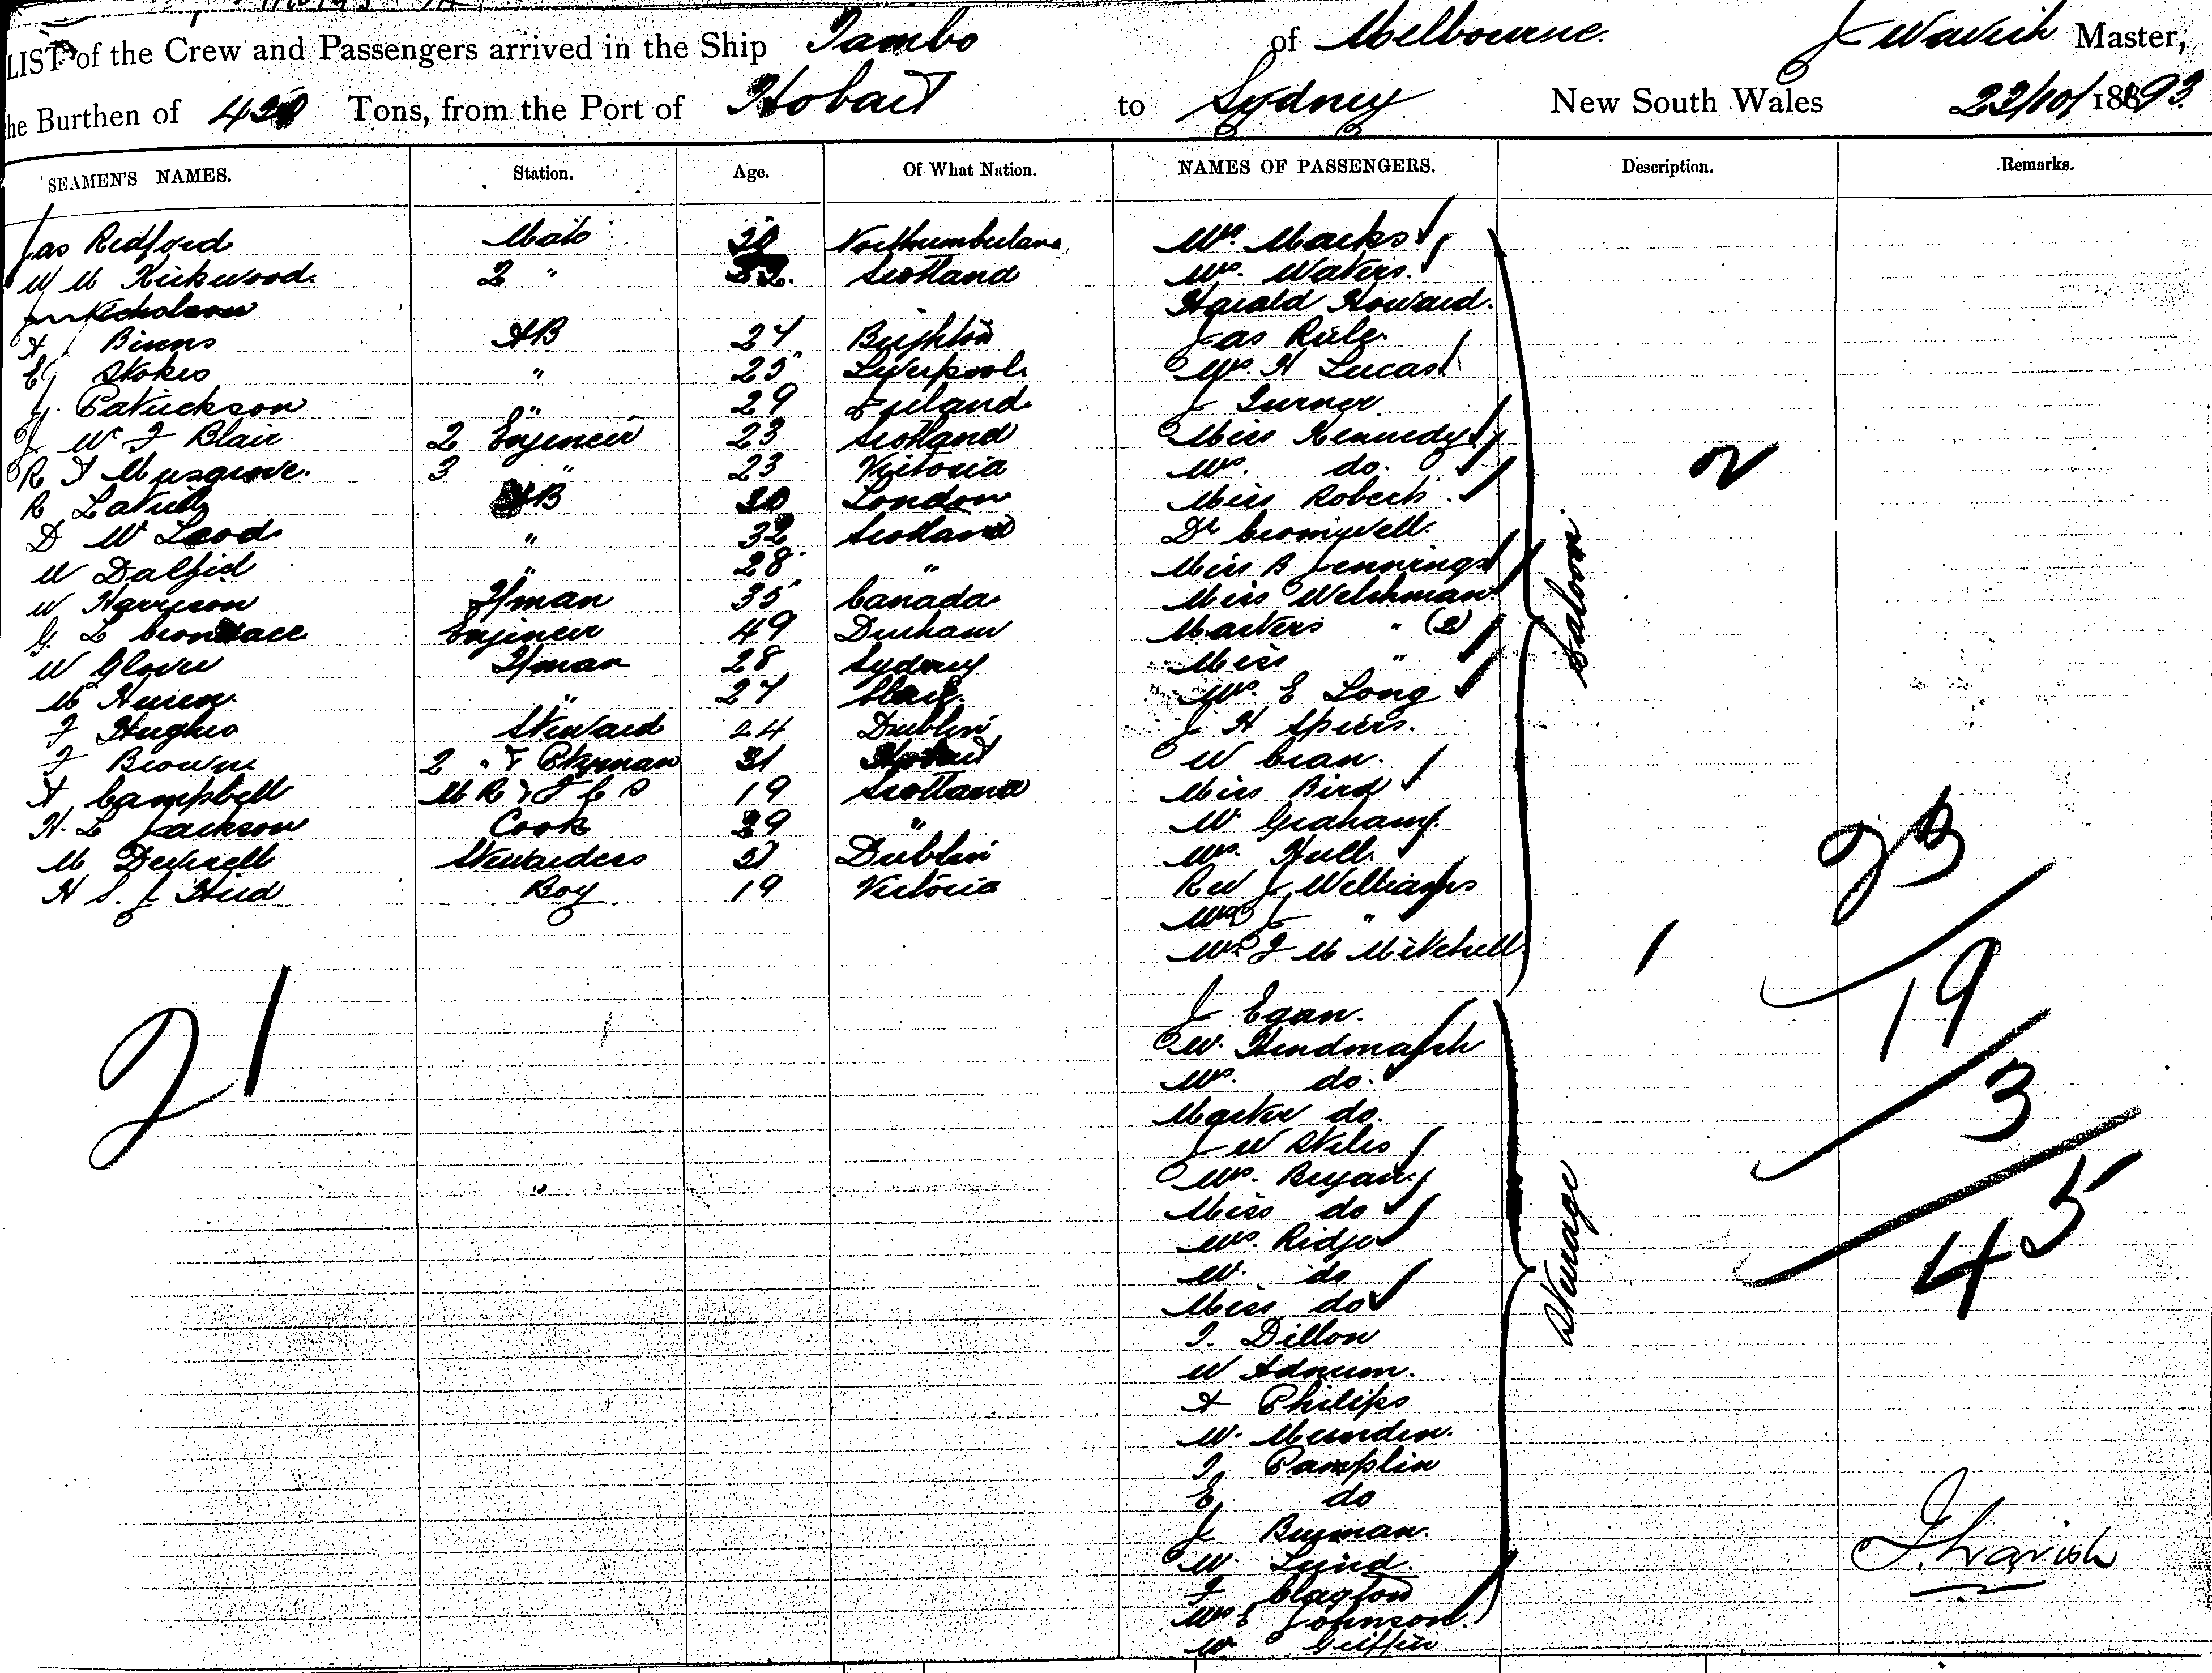 LIST of the Crew and Passengers arrived in the Ship Tambo of Melbourne. J Wavish Master,
he Burthen of Tons, from the Port of Hobart to Sydney New South Wales 23/10/1893
SEAMEN'S NAMES. Station. Age. Of What Nation. NAMES OF PASSENGERS. Description. Remarks.
Jas Redford Mate Northumberland Mrs. Marks
W M Kirkwood. 2 " 32. Scotland Mrs. Waters.
Nicholson Harald Howard.
A J Binns AB 27 Brighton Jas Rule.
E Stokes " 25 Liverpool. Mrs. H Lucas
J. Patrickson " 29 Ireland. J Turner
J W F Blair 2 Engineer 23 Scotland Miss Kennedy
R A Musgrove. 3 " 23 Victoria Mrs. do. 2
R AB 30 London Miss Roberts
D Mc Leod " 32 Scotland Dr Cromwell.
W " 28 " Miss B Jennings
W Harrison F/man 35 Canada Miss Welshman
G. L Engineer 49 Durham Masters " (2)
W Glover F/man 28 Sydney Miss "
M " 27 Mrs. E Long
F Hughes Steward 24 Dublin J H Spiers.
F Browne 2 " & 31 Hobart W Cran.
A Campbell 19 Scotland Miss Bird
H. L Jackson Cook 39 " W Graham
M Stewardess Dublin Mrs. Hull.
H S. J Hird Boy 19 Victoria Rev J Williams
Mrs J "
Mrs F M Mitchell 1
Saloon
23
21
J Egan.
W. Hindmarsh 19
Mrs. do.
Master do. 3
J W Stiles
Mrs. Bryan
Miss do 45
Mrs. Ridge
W. do
Miss do
Steerage
T. Dillon
W Adnum.
A Philips
W. Munden.
T. Pamplin
E. do
J Buyman.
W.
F Clayton
Mrs E Johnson.
W. Griffin
J. Wavish